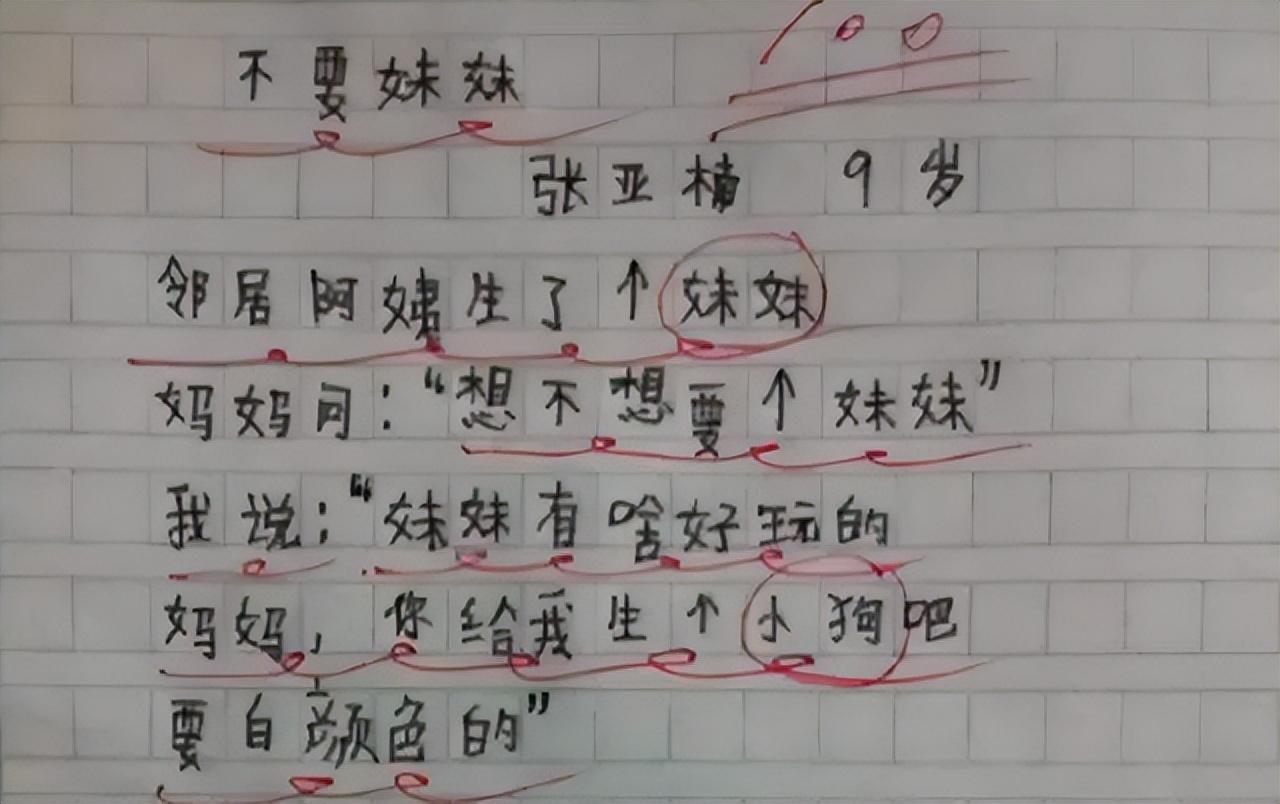 100
不要妹妹
张亚楠 9岁
邻居阿姨生了个妹妹
妈妈问：“想不想要个妹妹”
我说：“妹妹有啥好玩的
妈妈，你给我生个小狗吧
要白颜色的”